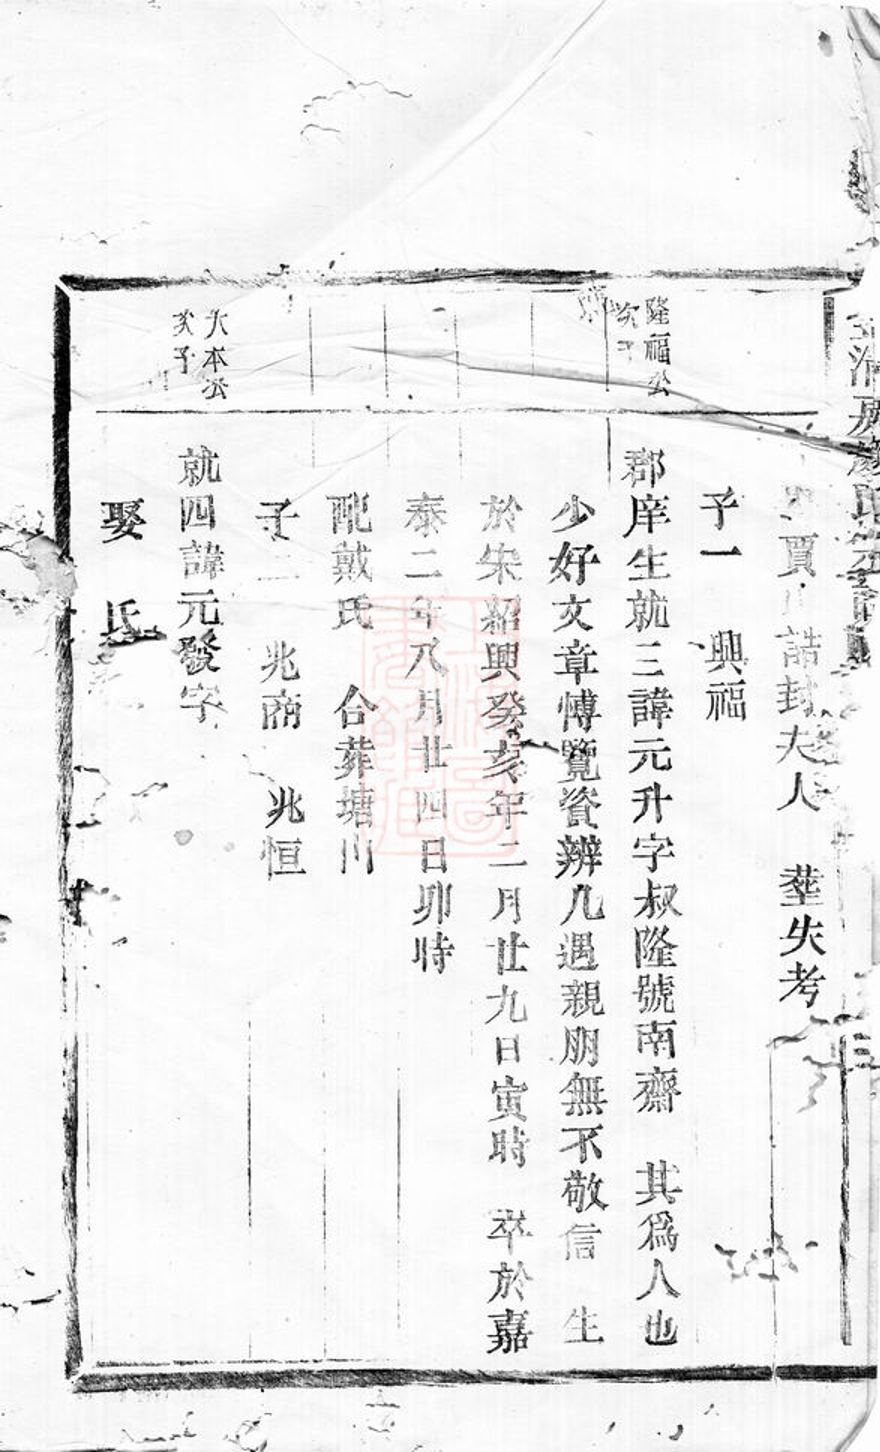 賈 誥封夫人 塟失考
子一 興福
隆福公
次子
郡庠生就三諱元升字叔隆號南齋 其爲人也
少好文章愽覽資辨凡遇親朋無不敬信 生
於宋紹興癸亥年二月廿九日寅時 卒於嘉
泰二年八月廿四日卯時
配戴氏 合葬塘山
子二 兆商 兆恒
大本公
次子
就四諱元發字
娶 氏